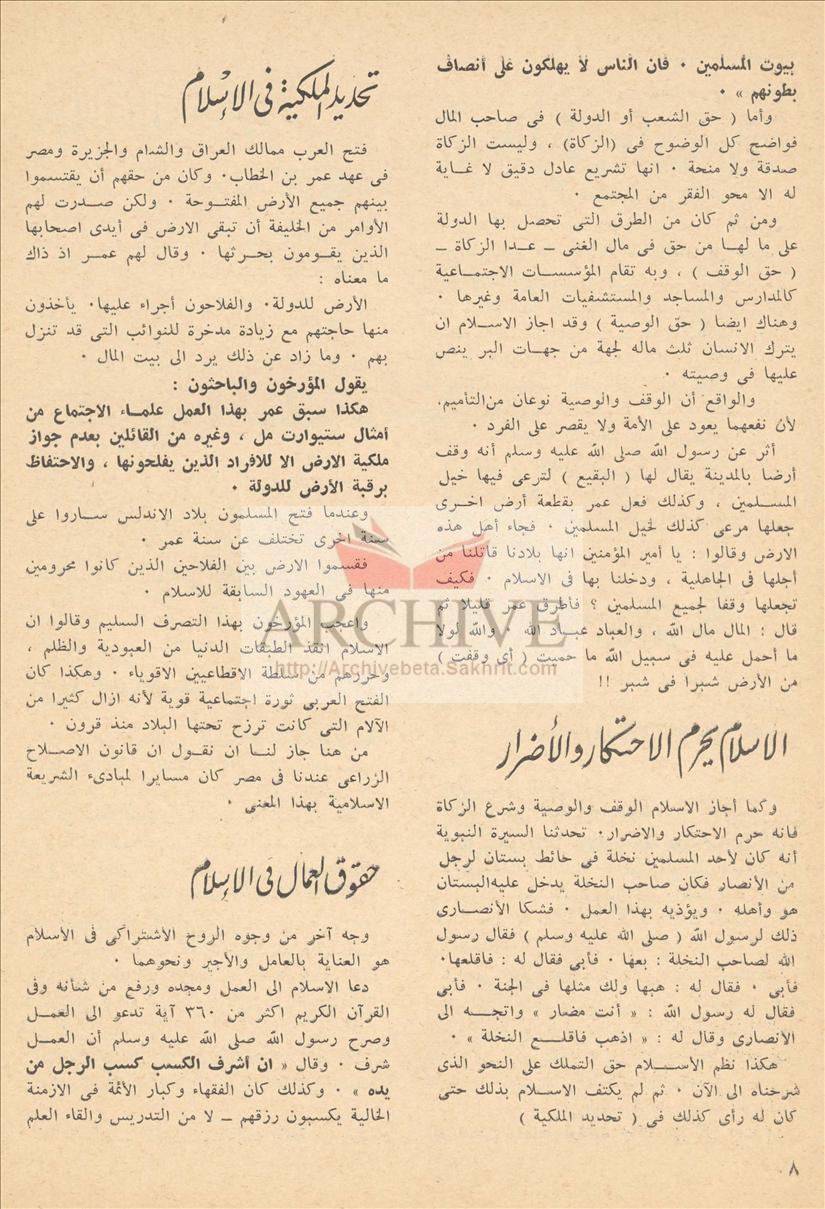 بيوت المسلمين ٠ فان الناس لا يهلكون على أنصاف
بطونهم » ٠
وأما ( حق الشعب أو الدولة ) فى صاحب المال
فواضح كل الوضوح فى (الزكاة) ، وليست الزكاة
صدقة ولا منحة ٠ انها تشريع عادل دقيق لا غـاية
له الا محو الفقر من المجتمع ٠
ومن ثم كان من الطرق التى تحصل بها الدولة
على ما لهـا من حق فى مال الغنى ــ عـدا الزكاة ــ
( حق الوقف ) ، وبه تقام المؤسسـات الاجتمـاعية
كالمدارس والمساجد والمستشفيات العامة وغيرها ٠
وهناك ايضا ( حق الوصية ) وقد اجاز الاسـلام ان
يترك الانسان ثلث ماله لجهة من جهـات البر ينص
عليها فى وصيته ٠
والواقع أن الوقف والوصية نوعان من التأميم.
لأن نفعهما يعود على الأمة ولا يقصر على الفرد ٠
أثر عن رسول الله صلى الله عليه وسلم أنه وقف
أرضا بالمدينة يقال لها ( البقيع ) لترعى فيها خيل
المسـلمين ، وكذلك فعل عمر بقطعة أرض اخـرى
جعلها مرعى كذلك لخيل المسلمين ٠ فجاء أهل هذه
الارض وقالوا : يا أمير المؤمنين انها بلادنا قاتلنا من
أجلها فى الجاهلية ، ودخلنا بها فى الاسلام ٠ فكيف
تجعلها وقفا لجميع المسلمين ؟ فأطرق عمر قليلا ثم
قال : المال مال الله ، والعباد عبـاد الله ٠ والله لولا
ما أحمل عليه فى سبيل الله ما حميت ( أى وقفت )
من الأرض شبرا فى شبر !!
الاسلام يحرم الاحتكار والأضرار
وكما أجاز الاسلام الوقف والوصية وشرع الزكاة
فانه حرم الاحتكار والاضرار٠ تحدثنا السيرة النبوية
أنه كان لأحد المسلمين نخلة فى حائط بستان لرجل
من الأنصار فكان صاحب النخلة يدخل عليه البستان
هو وأهله ٠ ويؤذيه بهذا العمل ٠ فشكا الأنصـارى
ذلك لرسول الله ( صلى الله عليه وسلم ) فقال رسول
الله لصاحب النخلة : بعها ٠ فأبى فقال له : فاقلعها٠
فأبى ٠ فقال له : هبها ولك مثلها فى الجنة ٠ فأبى
فقال له رسول الله : « أنت مضار » واتجـه الى
الأنصارى وقال له : « اذهب فاقلـع النخلة » ٠
هكذا نظم الأسـلام حق التملك على النحو الذى
شرحناه الى الآن ٠ ثم لم يكتف الاسـلام بذلك حتى
كان له رأى كذلك فى ( تحديد الملكية )
تحديد الملكية فى الإسلام
فتح العرب ممالك العراق والشام والجزيرة ومصر
فى عهد عمر بن الخطاب٠ وكان من حقهم أن يقتسموا
بينهم جميع الأرض المفتـوحة ٠ ولكن صـدرت لهم
الأوامر من الخليفة أن تبقى الارض فى أيدى اصحابها
الذين يقـومون بحـرثها ٠ وقال لهم عمـر اذ ذاك
ما معناه :
الأرض للدولة٠ والفلاحون أجراء عليها٠ يأخذون
منها حاجتهم مع زيادة مدخرة للنوائب التى قد تنزل
بهم ٠ وما زاد عن ذلك يرد الى بيت المال ٠
يقول المؤرخون والباحثون :
هكذا سبق عمر بهذا العمل علمـاء الاجتماع من
أمثال ستيوارت مل ، وغيره من القائلين بعدم جواز
ملكية الارض الا للافراد الذين يفلحونها ، والاحتفاظ
برقبة الأرض للدولة ٠
وعندما فتح المسلمون بلاد الاندلس سـاروا على
سنة اخرى تختلف عن سنة عمر ٠
فقسموا الارض بين الفلاحين الذين كانوا محرومين
منها فى العهود السابقة للاسلام ٠
واعجب المؤرخون بهذا التصرف السليم وقالوا ان
الاسلام انقذ الطبقات الدنيا من العبودية والظلم ،
وحررهم من سلطة الاقطاعيين الاقوياء ٠ وهكذا كان
الفتح العربى ثورة اجتماعية قوية لأنه ازال كثيرا من
الآلام التى كانت ترزح تحتها البلاد منذ قرون ٠
من هنا جاز لنـا ان نقـول ان قانون الاصـلاح
الزراعى عندنا فى مصر كان مسايرا لمبادىء الشريعة
الاسلامية بهذا المعنى ٠
حقوق العمال فى الإسلام
وجه آخر من وجوه الروح الاشتراكى فى الأسلام
هو العناية بالعامل والأجير ونحوهما ٠
دعا الاسلام الى العمل ومجده ورفع من شأنه وفى
القرآن الكريم اكثر من ٣٦٠ آية تدعو الى العمـل
وصرح رسول الله صلى الله عليه وسلم أن العمـل
شرف ٠ وقال « ان أشرف الكسب كسب الرجل من
يده » ٠ وكذلك كان الفقهاء وكبار الأئمة فى الازمنة
الخالية يكسبون رزقهم ــ لا من التدريس والقاء العلم
٨
ARCHIVE
http://Archivebeta.Sakhrit.com